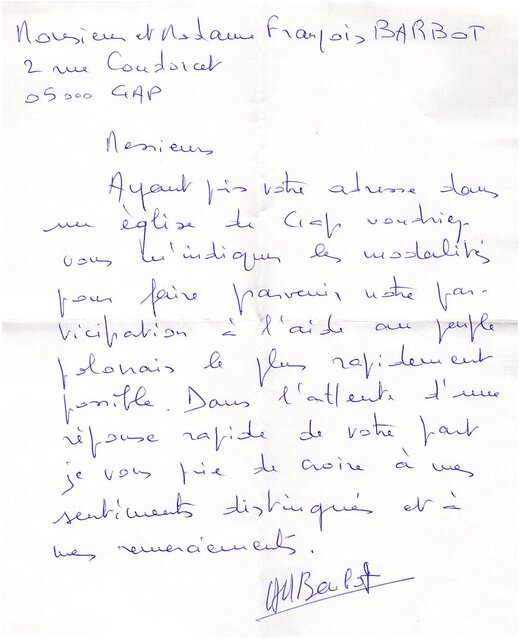 Monsieur et Madame François BARBOT
2 rue Condorcet
05000 GAP
Messieurs
Ayant pris votre adresse dans
une église de Gap voudriez-
vous m'indiquer les modalités
pour faire parvenir notre par-
ticipation à l'aide au peuple
polonais le plus rapidement
possible. Dans l'attente d'une
réponse rapide de votre part
je vous prie de croire à mes
sentiments distingués et à
mes remerciements.
Barbot